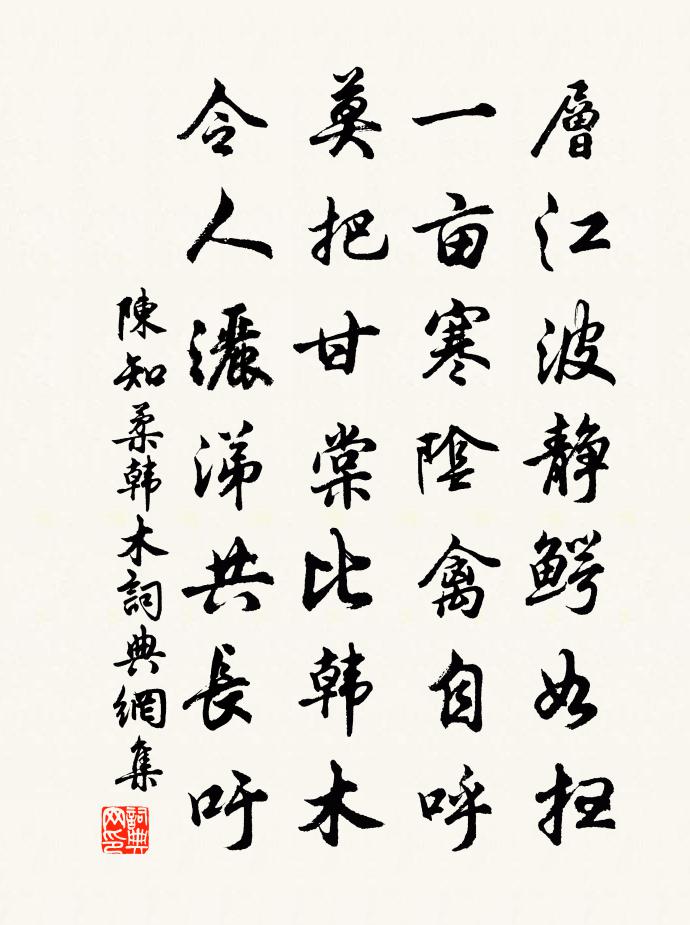 層江波静鳄如扫
一亩寒陰禽自呼
莫把甘棠比韩木
令人灑涕共長吁
陳知柔韩木詞典網集
詞典網印